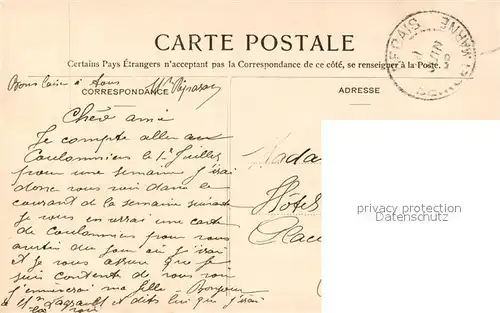 CARTE POSTALE
Certains Pays Étrangers n'acceptant pas la Correspondance de ce côté, se renseigner à la Poste.
CORRESPONDANCE
ADRESSE
Chère amie
Je compte aller au
Coulommiers le 1er Juillet
pour une semaine j'irai
donc vous voir dans le
courant de la semaine suivante
Je vous enverrai une carte
de Coulommiers pour vous
avertir du jour où j'irai
et je vous assure que je
suis contente de vous voir
j'emmènerai ma fille Bonjour
à Mme et dites lui que j'irai
la voir
Mada
Hôtel
Place
MARNE
Copyright protected
Datenschutz